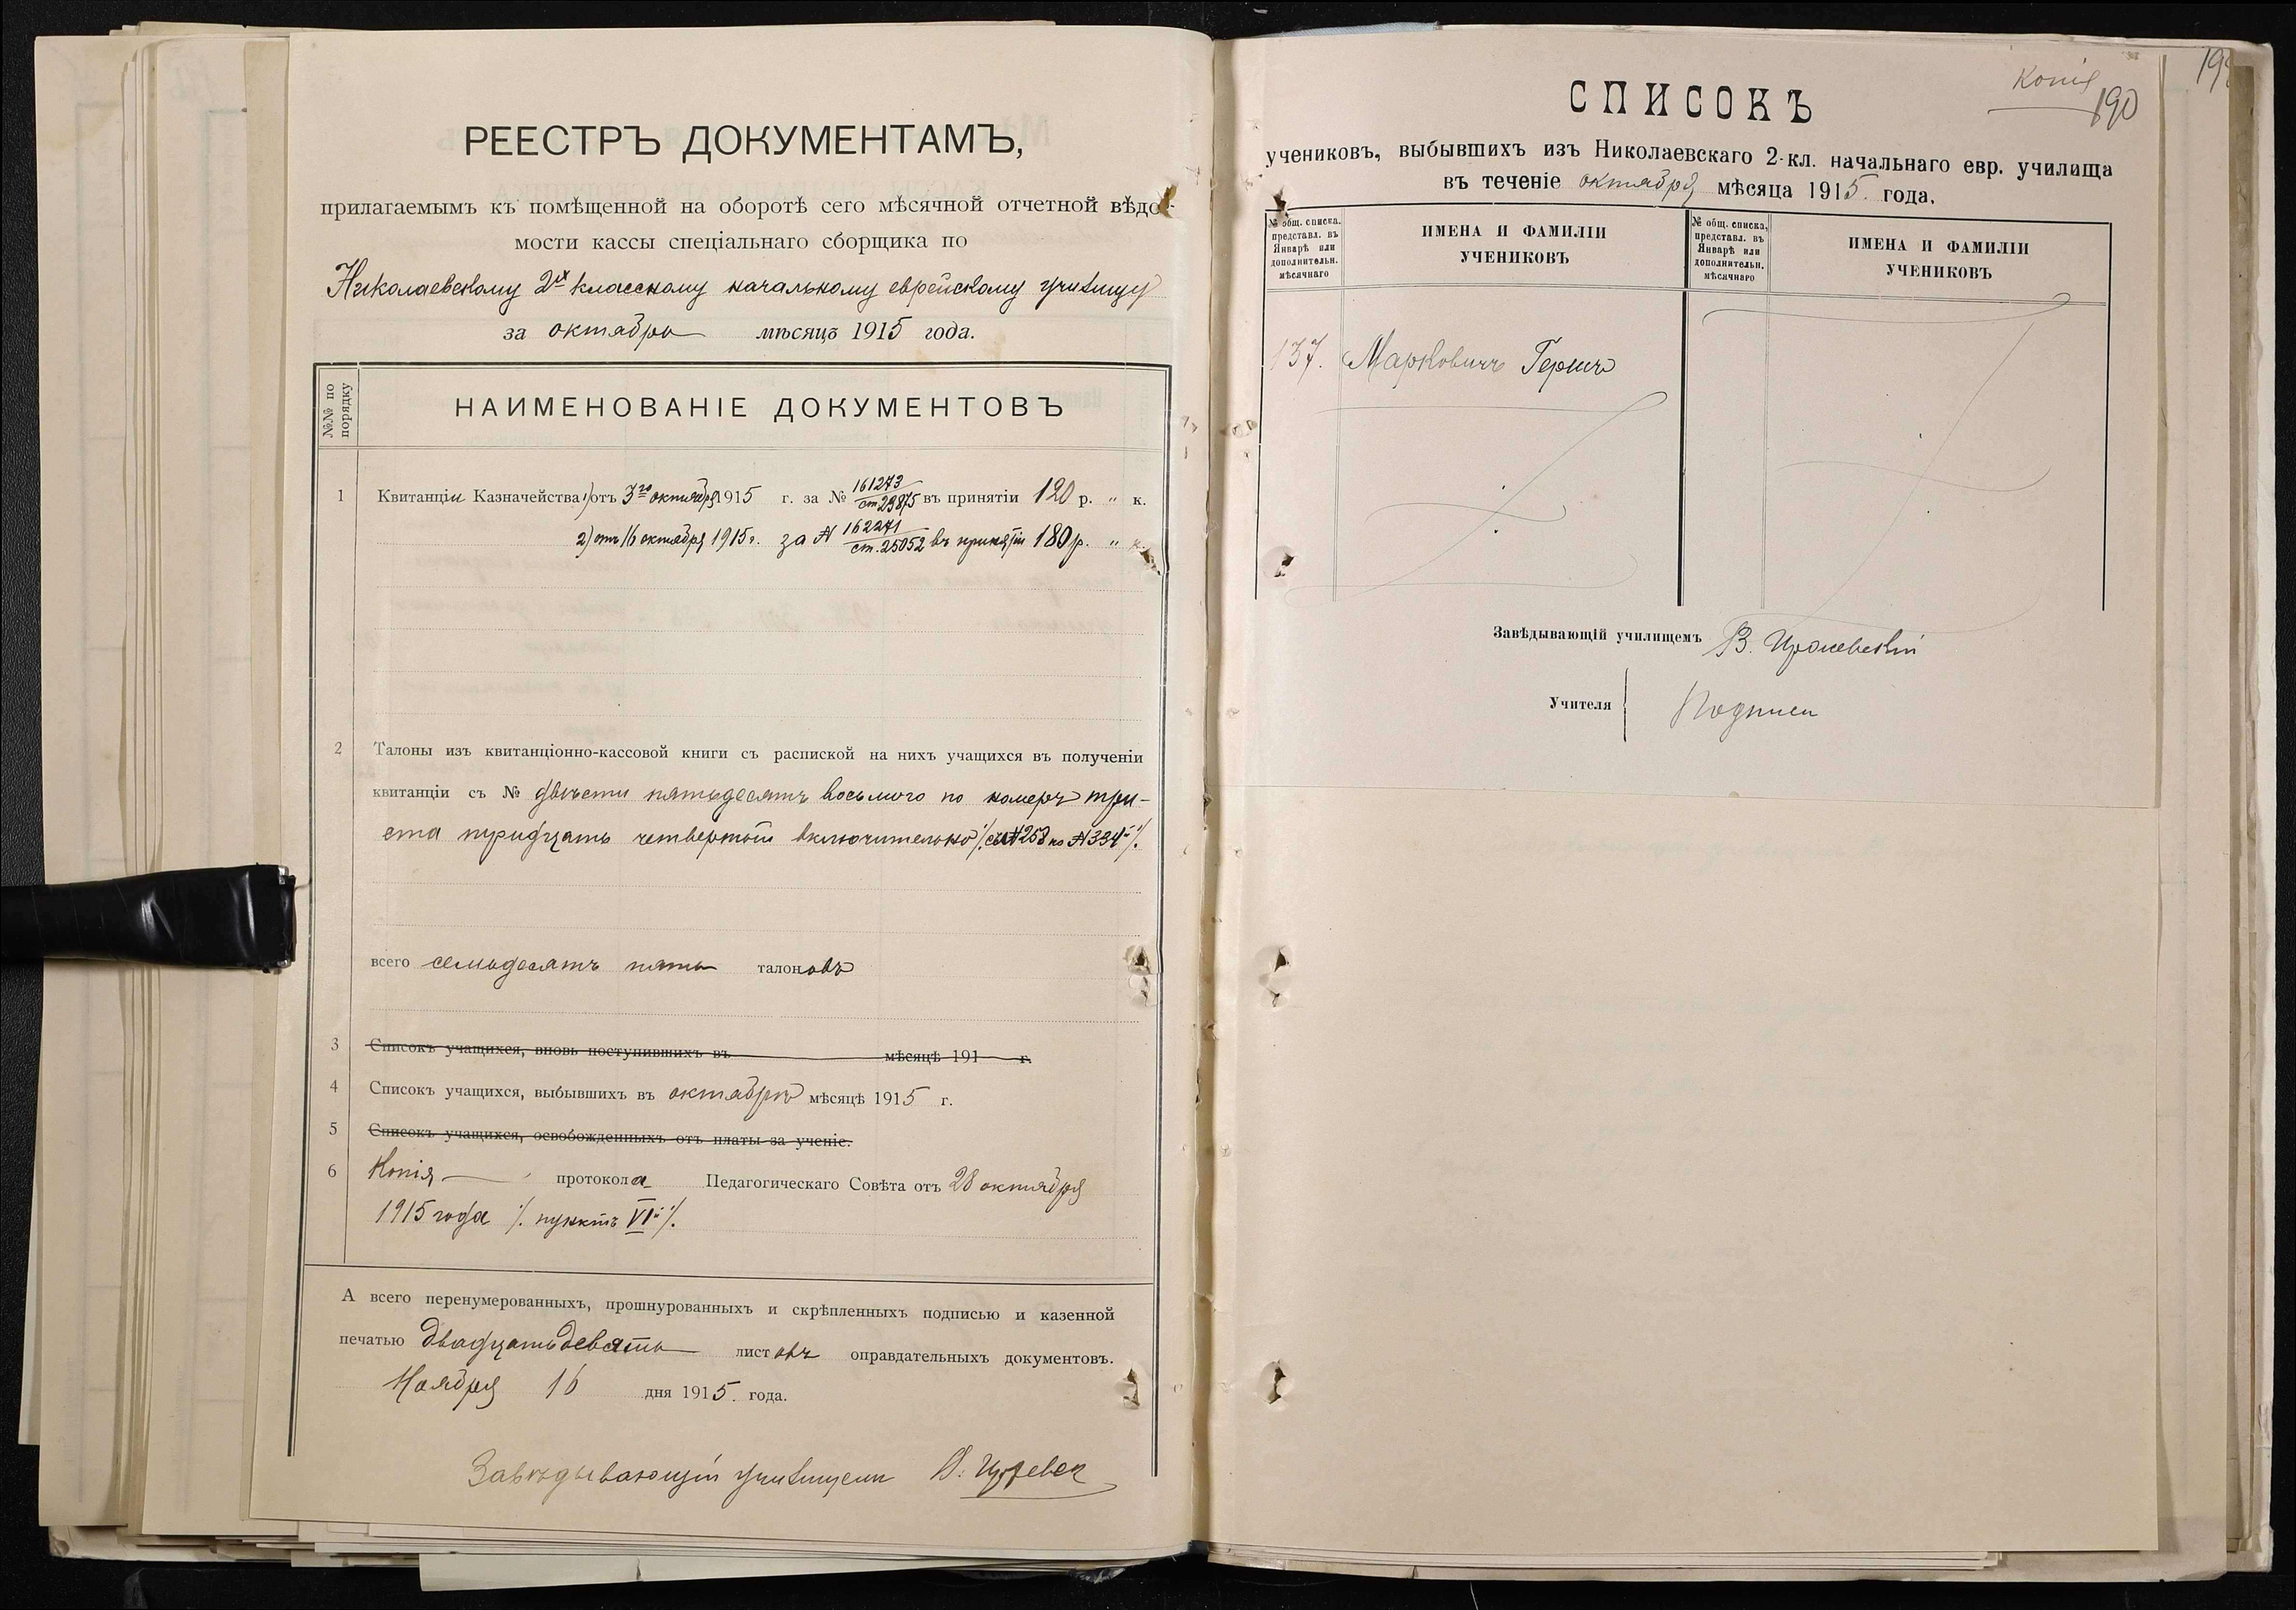 РЕЕСТРЪ ДОКУМЕНТАМЪ,
прилагаемымъ къ помѣщенной на оборотѣ сего мѣсячной отчетной вѣдо-
мости кассы спеціальнаго сборщика по
Николаевскому 2х классному начальному еврейскому училищу
за октябрь мѣсяцъ 1915 года.
№№ по порядку
НАИМЕНОВАНІЕ ДОКУМЕНТОВЪ
1 Квитанціи Казначейства 1) отъ 3го октября 1915 г. за № 161273/ст. 23875 въ принятіи 120 р. " к.
2) отъ 16 октября 1915 г. за № 162271/ст. 25052 въ принятіи 180 р. " к.
2 Талоны изъ квитанціонно-кассовой книги съ распиской на нихъ учащихся въ полученіи
квитанціи съ № двѣсти пятьдесятъ восьмого по номеръ три-
ста тридцать четвертый включительно /. съ № 258 по № 334й /.
всего семьдесятъ пять талоновъ
3 Списокъ учащихся, вновь поступившихъ въ мѣсяцѣ 191 г.
4 Списокъ учащихся, выбывшихъ въ октябрѣ мѣсяцѣ 1915 г.
5 Списокъ учащихся, освобожденныхъ отъ платы за ученіе.
6 Копія протокола Педагогическаго Совѣта отъ 28 октября
1915 года /. пунктъ VIй /.
А всего перенумерованныхъ, прошнурованныхъ и скрѣпленныхъ подписью и казенной
печатью двадцать девять листовъ оправдательныхъ документовъ.
Ноября 16 дня 1915. года.
Завѣдывающій училищемъ
Копія
190
СПИСОКЪ
учениковъ, выбывшихъ изъ Николаевскаго 2-кл. начальнаго евр. училища
въ теченіе октября мѣсяца 1915. года.
№ общ. списка. представл. въ Январѣ или дополнительн. мѣсячнаго
ИМЕНА И ФАМИЛІИ УЧЕНИКОВЪ
№ общ. списка, представл. въ Январѣ или дополнительн. мѣсячнаго
ИМЕНА И ФАМИЛІИ УЧЕНИКОВЪ
137. Марковичъ Гершъ
Завѣдывающій училищемъ В.
Учителя Подписи